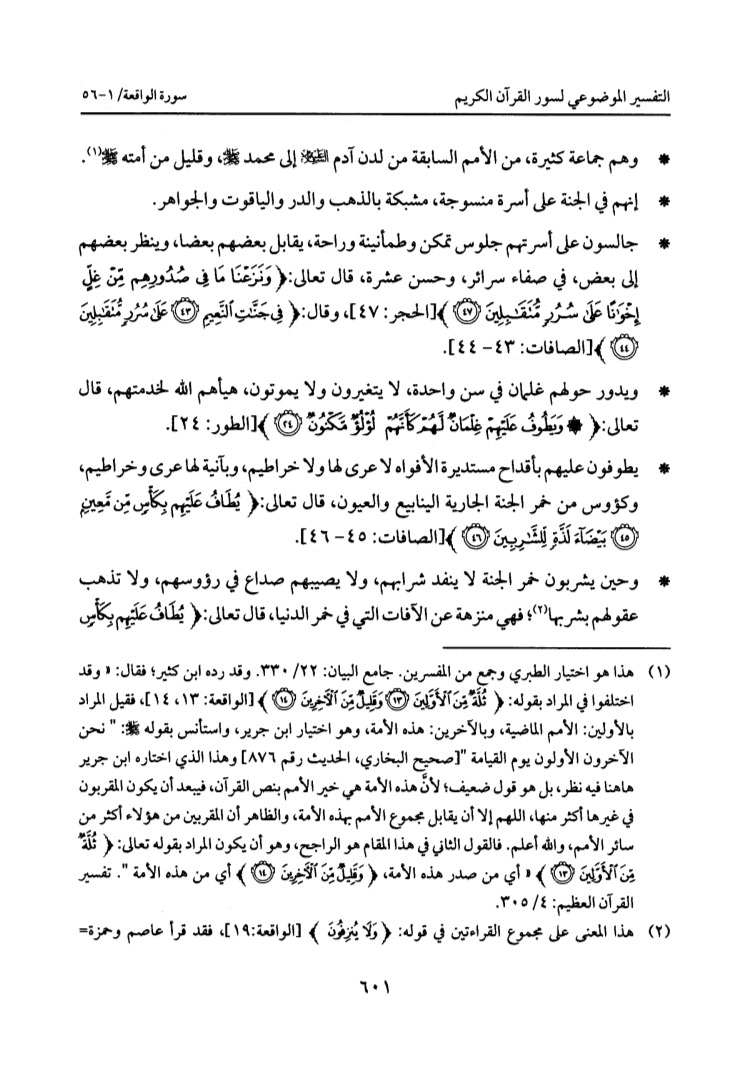 التفسير الموضوعي لسور القرآن الكريم
سورة الواقعة/ ١-٥٦
* وهم جماعة كثيرة، من الأمم السابقة من لدن آدم عليه السلام إلى محمد ﷺ، وقليل من أمته ﷺ(١).
* إنهم في الجنة على أسرة منسوجة، مشبكة بالذهب والدر والياقوت والجواهر.
* جالسون على أسرتهم جلوس تمكن وطمأنينة وراحة، يقابل بعضهم بعضا، وينظر بعضهم
إلى بعض، في صفاء سرائر، وحسن عشرة، قال تعالى: ﴿ وَنَزَعْنَا مَا فِى صُدُورِهِم مِّنْ غِلٍّ
إِخْوَٰنًا عَلَىٰ سُرُرٍ مُّتَقَـٰبِلِينَ ۝٤٧ ﴾[الحجر: ٤٧]، وقال: ﴿ فِى جَنَّـٰتِ ٱلنَّعِيمِ ۝٤٣ عَلَىٰ سُرُرٍ مُّتَقَـٰبِلِينَ
۝٤٤ ﴾[الصافات: ٤٣- ٤٤].
* ويدور حولهم غلمان في سن واحدة، لا يتغيرون ولا يموتون، هيأهم الله لخدمتهم، قال
تعالى: ﴿ ۞ وَيَطُوفُ عَلَيْهِمْ غِلْمَانٌ لَّهُمْ كَأَنَّهُمْ لُؤْلُؤٌ مَّكْنُونٌ ۝٢٤ ﴾[الطور: ٢٤].
* يطوفون عليهم بأقداح مستديرة الأفواه لا عرى لها ولا خراطيم، وبآنية لها عرى وخراطيم،
وكؤوس من خمر الجنة الجارية الينابيع والعيون، قال تعالى: ﴿ يُطَافُ عَلَيْهِم بِكَأْسٍ مِّن مَّعِينٍ
۝٤٥ بَيْضَآءَ لَذَّةٍ لِّلشَّـٰرِبِينَ ۝٤٦ ﴾[الصافات: ٤٥- ٤٦].
* وحين يشربون خمر الجنة لا ينفد شرابهم، ولا يصيبهم صداع في رؤوسهم، ولا تذهب
عقولهم بشربها(٢)؛ فهي منزهة عن الآفات التي في خمر الدنيا، قال تعالى: ﴿ يُطَافُ عَلَيْهِم بِكَأْسٍ
(١) هذا هو اختيار الطبري وجمع من المفسرين. جامع البيان: ٢٢/ ٣٣٠. وقد رده ابن كثير؛ فقال: « وقد
اختلفوا في المراد بقوله: ﴿ ثُلَّةٌ مِّنَ ٱلْأَوَّلِينَ ۝١٣ وَقَلِيلٌ مِّنَ ٱلْآخِرِينَ ۝١٤ ﴾ [الواقعة: ١٣، ١٤]، فقيل المراد
بالأولين: الأمم الماضية، وبالآخرين: هذه الأمة، وهو اختيار ابن جرير، واستأنس بقوله ﷺ: " نحن
الآخرون الأولون يوم القيامة "[صحيح البخاري، الحديث رقم ٨٧٦] وهذا الذي اختاره ابن جرير
هاهنا فيه نظر، بل هو قول ضعيف؛ لأنَّ هذه الأمة هي خير الأمم بنص القرآن، فيبعد أن يكون المقربون
في غيرها أكثر منها، اللهم إلا أن يقابل مجموع الأمم بهذه الأمة، والظاهر أن المقربين من هؤلاء أكثر من
سائر الأمم، والله أعلم. فالقول الثاني في هذا المقام هو الراجح، وهو أن يكون المراد بقوله تعالى: ﴿ ثُلَّةٌ
مِّنَ ٱلْأَوَّلِينَ ۝١٣ ﴾ « أي من صدر هذه الأمة، ﴿ وَقَلِيلٌ مِّنَ ٱلْآخِرِينَ ۝١٤ ﴾ أي من هذه الأمة ". تفسير
القرآن العظيم: ٤/ ٣٠٥.
(٢) هذا المعنى على مجموع القراءتين في قوله: ﴿ وَلَا يُنزِفُونَ ﴾ [الواقعة:١٩]، فقد قرأ عاصم وحمزة=
٦٠١